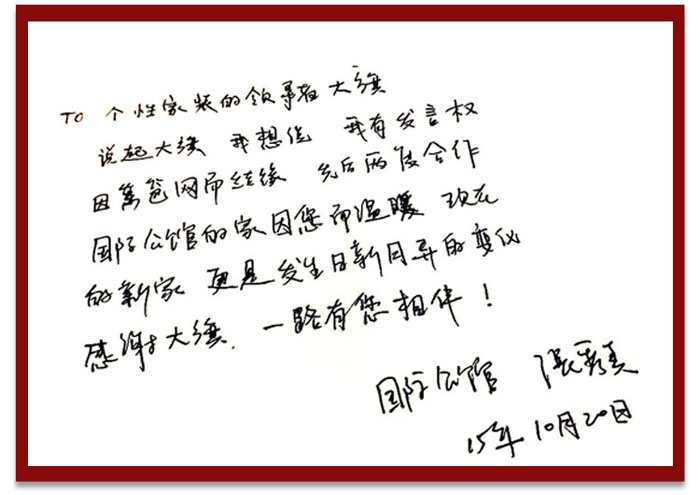 TO 个性家装的领导者大旗
说起大旗 我想说 我有发言权
因篱笆网而结缘 先后两度合作
国际公馆的家因您而温暖 现在
的新家 更是发生日新月异的变化
感谢大旗,一路有您相伴!
国际公馆 张秀美
15年10月20日